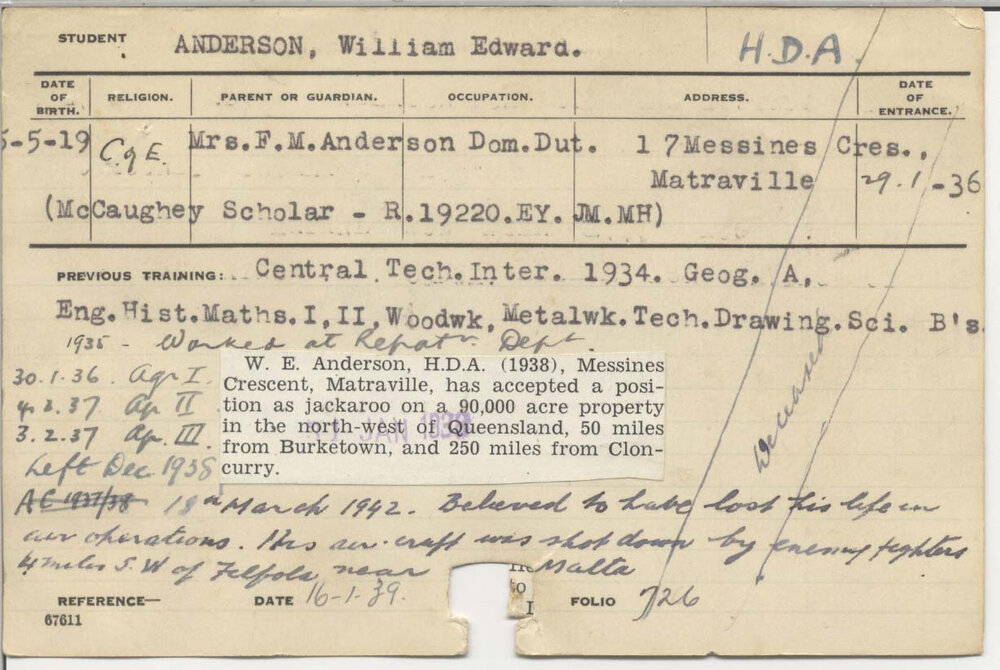 STUDENT ANDERSON, William Edward. H.D.A.
DATE OF BIRTH. RELIGION. PARENT OR GUARDIAN. OCCUPATION. ADDRESS. DATE OF ENTRANCE.
5-5-19 C of E. Mrs.F.M.Anderson Dom.Dut. 1 7Messines Cres.,
Matraville 29.1-36
(McCaughey Scholar - R.19220.EY.JM.MH)
PREVIOUS TRAINING: Central Tech.Inter. 1934. Geog. A,
Eng.Hist.Maths.I,II,Woodwk,Metalwk.Tech.Drawing.Sci. B's.
1935 - Worked at Repatn. Dept.
W. E. Anderson, H.D.A. (1938), Messines
30.1.36. Agr I.
Crescent, Matraville, has accepted a posi-
4.2.37 Ag II
tion as jackaroo on a 90,000 acre property
JAN 1939
in the north-west of Queensland, 50 miles
3.2.37 Ag. III.
from Burketown, and 250 miles from Clon-
Left Dec. 1938
curry.
Deceased
A C 1937/38 18th March 1942. Believed to have lost his life in
air operations. His air-craft was shot down by enemy fighters
4 miles S.W of Filfola near Malta
to
I
REFERENCE— DATE 16-1-39. FOLIO 726
67611